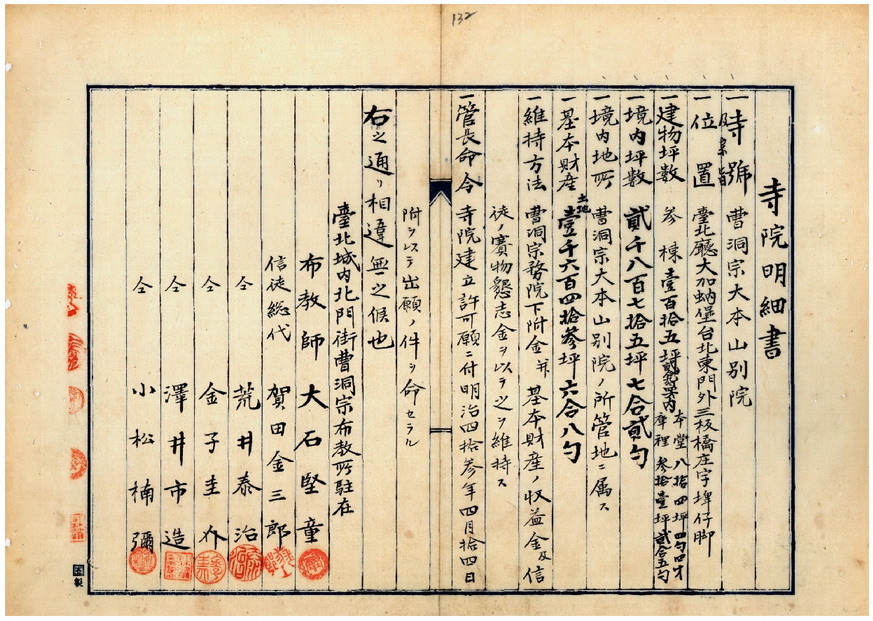 132
寺院明細書
一寺號 曹洞宗大本山別院
及宗旨
一位置 臺北廳大加蚋堡台北東門外三板橋庄字埤仔脚
一建物坪數 参棟壹百拾五坪
本堂 八拾四坪四勺四才
庫裡 参拾壹坪貳合五勺
一境内坪數 貳千八百七拾五坪七合貳勺
一境内地所 曹洞宗大本山別院ノ所管地ニ属ス
一基本財産 土地壹千六百四拾参坪六合八勺
一維持方法 曹洞宗務院下附金並基本財産ノ收益金及信
徒ノ賽物懇志金ヲ以テ之ヲ維持ス
一管長命令 寺院建立許可願ニ付明治四拾参年四月拾四日
附ヲ以テ出願ノ件ヲ命セラル
右之通リ相違無之候也
臺北城内北門街曹洞宗布教所駐在
布教師 大石堅童
信徒総代 賀田金三郎
仝 荒井泰治
仝 金子圭介
仝 澤井市造
仝 小松楠彌